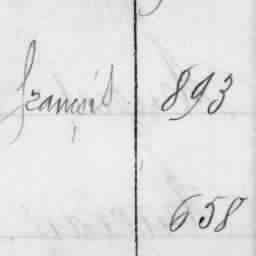 francis 893
658